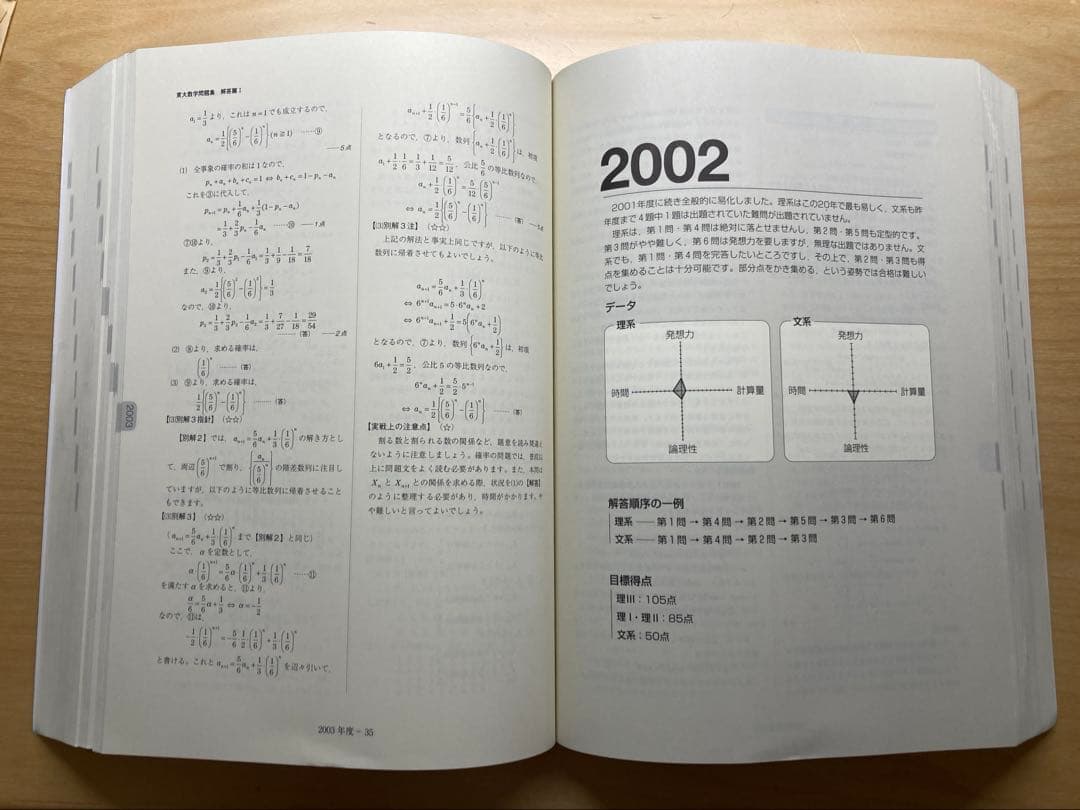 東大数学問題集 解答篇 I
a₁=1/3より、これは n=1 でも成立するので、
aₙ=1/2{(5/6)ⁿ−(1/6)ⁿ}(n≧1) ……⑨
——5点
(1) 全事象の確率の和は1なので、
pₙ+aₙ+bₙ+cₙ=1 ⇔ bₙ+cₙ=1−pₙ−aₙ
これを③に代入して、
pₙ₊₁=pₙ+1/6aₙ+1/3(1−pₙ−aₙ)
=1/3+2/3pₙ−1/6aₙ ……⑩ ——1点
⑦⑩より、
p₂=1/3+2/3p₁−1/6a₁=1/3+1/9−1/18=7/18
また、⑨より、
a₂=1/2{(5/6)²−(1/6)²}=1/3
なので、⑩より、
p₃=1/3+2/3p₂−1/6a₂=1/3+7/27−1/18=29/54
………(答) ——2点
(2) ⑧より、求める確率は、
(1/6)ⁿ ………(答)
(3) ⑨より、求める確率は、
1/2{(5/6)ⁿ−(1/6)ⁿ} ………(答)
【(3)別解3指針】(☆☆)
【別解2】では、aₙ₊₁=5/6aₙ+1/3・(1/6)ⁿ の解き方とし
て、両辺(5/6)ⁿ⁺¹で割り、{aₙ/(5/6)ⁿ}の階差数列に注目し
ていますが、以下のように等比数列に帰着させること
もできます。
【(3)別解3】(☆☆)
(aₙ₊₁=5/6aₙ+1/3・(1/6)ⁿ まで【別解2】と同じ)
ここで、α を定数として、
α・(1/6)ⁿ⁺¹=5/6α・(1/6)ⁿ+1/3・(1/6)ⁿ ……⑪
を満たす α を求めると、⑪より、
α/6=5/6α+1/3 ⇔ α=−1/2
なので、⑪は、
−1/2・(1/6)ⁿ⁺¹=−5/6・1/2・(1/6)ⁿ+1/3・(1/6)ⁿ
と書ける。これと aₙ₊₁=5/6aₙ+1/3・(1/6)ⁿ を辺々引いて、
aₙ₊₁+1/2・(1/6)ⁿ⁺¹=5/6{aₙ+1/2・(1/6)ⁿ}
となるので、⑦より、数列{aₙ+1/2・(1/6)ⁿ}は、初項
a₁+1/2・1/6=1/3+1/12=5/12、公比5/6の等比数列なので、
aₙ+1/2・(1/6)ⁿ=5/12・(5/6)ⁿ⁻¹
⇔ aₙ=1/2{(5/6)ⁿ−(1/6)ⁿ} ………(答) ——5点
【(3)別解3注】(☆☆)
上記の解法と事実上同じですが、以下のように等比
数列に帰着させてもよいでしょう。
aₙ₊₁=5/6aₙ+1/3・(1/6)ⁿ
⇔ 6ⁿ⁺¹aₙ₊₁=5・6ⁿaₙ+2
⇔ 6ⁿ⁺¹aₙ₊₁+1/2=5(6ⁿaₙ+1/2)
となるので、⑦より、数列{6ⁿaₙ+1/2}は、初項
6a₁+1/2=5/2、公比5の等比数列なので、
6ⁿaₙ+1/2=5/2・5ⁿ⁻¹
⇔ aₙ=1/2{(5/6)ⁿ−(1/6)ⁿ} ………(答)
【実戦上の注意点】(☆)
割る数と割られる数の関係など、題意を読み間違え
ないように注意しましょう。確率の問題では、普段以
上に問題文をよく読む必要があります。また、本問は
Xₙ と Xₙ₊₁ との関係を求める際、状況を(1)の【解答】
のように整理する必要があり、時間がかかります。や
や難しいと言ってよいでしょう。
2003
2003 年度 − 35
2002
2001年度に続き全般的に易化しました。理系はこの20年で最も易しく、文系も昨
年度まで4題中1題は出題されていた難問が出題されていません。
理系は、第1問・第4問は絶対に落とせませんし、第2問・第5問も定型的です。
第3問がやや難しく、第6問は発想力を要しますが、無理な出題ではありません。文
系でも、第1問・第4問を完答したいところですし、その上で、第2問・第3問も得
点を集めることは十分可能です。部分点をかき集める、という姿勢では合格は難しい
でしょう。
データ
理系
発想力
時間
計算量
論理性
文系
発想力
時間
計算量
論理性
解答順序の一例
理系 —— 第1問 → 第4問 → 第2問 → 第5問 → 第3問 → 第6問
文系 —— 第1問 → 第4問 → 第2問 → 第3問
目標得点
理III：105点
理I・理II：85点
文系：50点